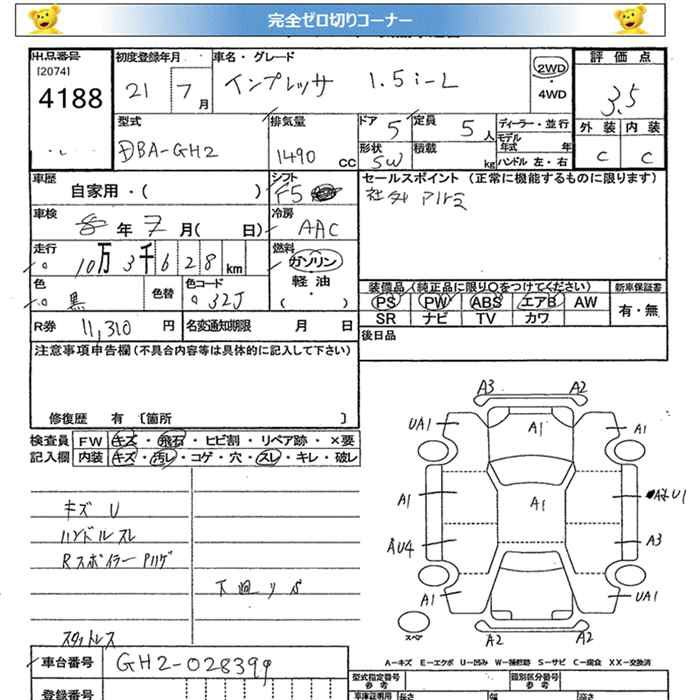 完全ゼロ切りコーナー
出品番号 初度登録年月 車名・グレード 評価点
[2074]
4188 21 7月 インプレッサ 1.5i-L 2WD ・4WD 3.5
型式 排気量 ドア 5 定員 5人 ディーラー・並行 外装 内装
DBA-GH2 1490 cc 形状 SW 積載 kg モデル年式 年 C C
ハンドル 左・右
車歴 自家用・( ) シフト F5 セールスポイント (正常に機能するものに限ります)
車検 年 7月( 日) 冷房 AAC 社外アルミ
走行 10万3千628km 燃料 ガソリン・軽油・( )
色 黒 色替 色コード 32J 装備品(純正品に限り○をつけてください) 新車保証書
PS PW ABS エアB AW 有・無
SR ナビ TV カワ
R券 11,310円 名変通知期限 月 日 後日品
注意事項申告欄(不具合内容等は具体的に記入して下さい)
修復歴 有 〔箇所 〕
検査員記入欄 FW キズ・飛石・ヒビ割・リペア跡・×要
内装 キズ・汚レ・コゲ・穴・スレ・キレ・破レ
キズ U
ハンドルスレ
Rスポイラー Pハゲ
下廻りS
スタットレス
A3 A2
UA1 A1 A1
A1 A1 U1
AU4 A3
A1 UA1
スペア A2 A2
A-キズ E-エクボ U-凹み W-補修跡 S-サビ C-腐食 XX-交換済
車台番号 GH2-028399
型式指定番号 参考 類別区分番号 参考
登録番号 車庫証明用 長さ 幅 高さ